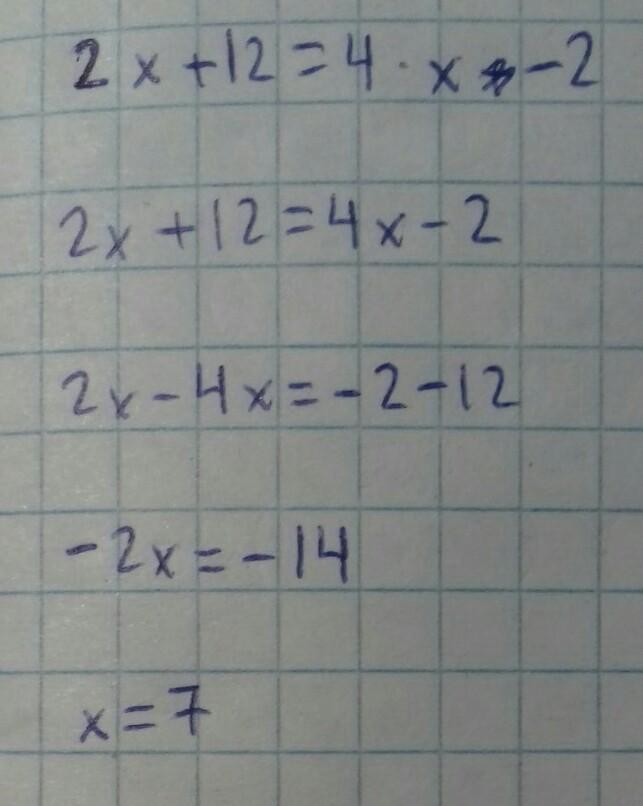 2x+12=4·x-2
2x+12=4x-2
2x-4x=-2-12
-2x=-14
x=7